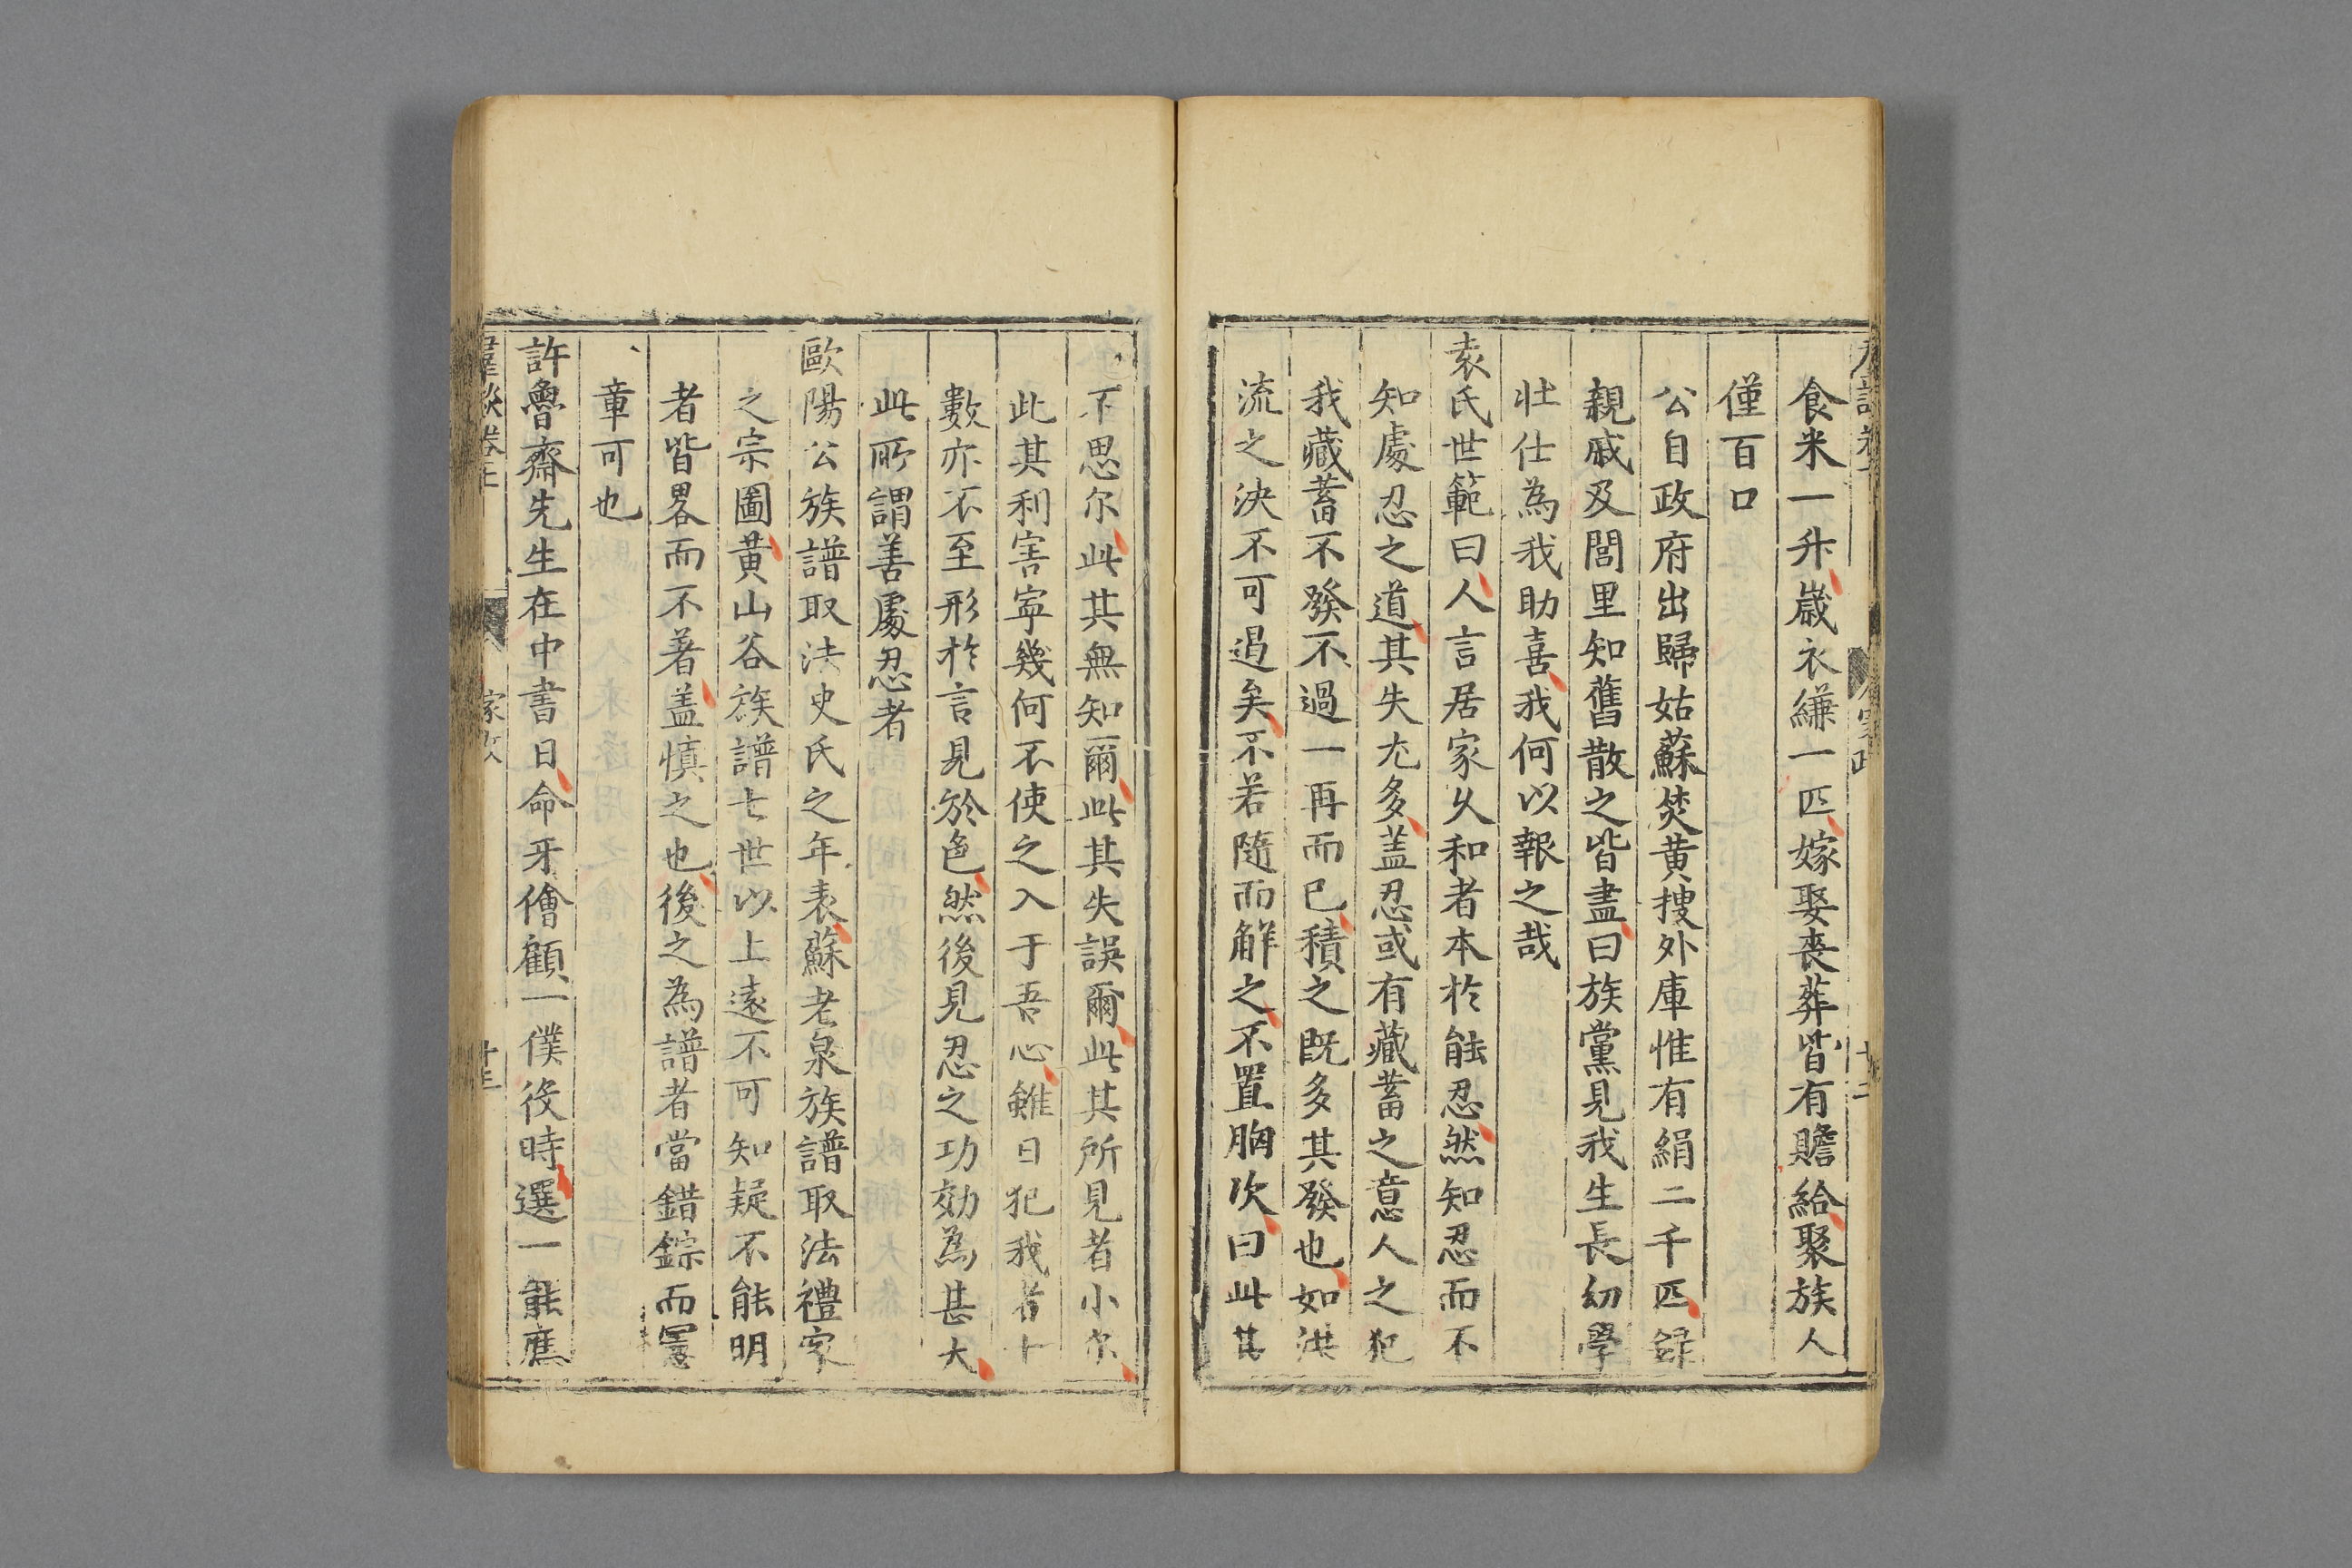 食米一升歲衣縑一匹嫁娶喪葬皆有贍給聚族人
僅百口
公自政府出歸姑蘇焚黄搜外庫惟有絹二千匹録
親戚及閭里知舊散之皆盡曰族黨見我生長幼學
壯仕為我助喜我何以報之哉
袁氏世範曰人言居家乆和者本於能忍然知忍而不
知處忍之道其失尤多盖忍或有藏蓄之意人之犯
我藏蓄不發不過一再而已積之既多其發也如洪
流之决不可遏矣不若隨而觧之不置胸次曰此其
不思尔此其無知爾此其失誤爾此其所見者小尔
此其利害寕幾何不使之入于吾心雖日犯我者十
數亦不至形於言見於色然後見忍之功効為甚大
此所謂善處忍者
歐陽公族譜取法史氏之年表蘇老泉族譜取法禮家
之宗圖黄山谷族譜七世以上遠不可知疑不能明
者皆畧而不著盖慎之也後之為譜者當錯錝而
章可也
許魯齋先生在中書日命牙儈顧一僕役時選一能應
家政